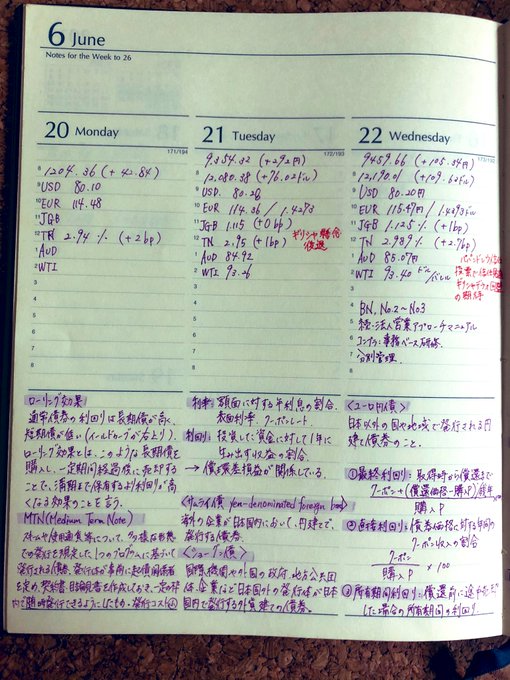 6 June
Notes for the Week to 26
20 Monday
171/194
8 1204.36 (+ 42.84)
9 USD 80.10
10 EUR 114.48
11 JGB
12 TN 2.94 % (+2bp)
1 AUD
2 WTI
3
4
5
6
7
8
21 Tuesday
172/193
9,354.32 (+292円)
8 12,080.38 (+76.02ドル)
9 USD. 80.26
10 EUR 114.36 / 1.4293
11 JGB 1.115 (+0bp)
12 TN 2.95 (+1bp) ギリシャ懸念
後退
1 AUD 84.92
2 WTI 93.26
3
4
5
6
7
8
22 Wednesday
173/192
9459.66 (+105.34円)
8 12,190.01 (+109.63ドル)
9 USD 80.20円
10 EUR 115.47円 / 1.4393ドル
11 JGB 1.125 % (+1bp)
12 TN 2.989 % (+2.7bp)
1 AUD 85.07円
2 WTI 93.40 ドル/バレル
ギリシャデフォ回避
の期待
3
4 BN, No.2〜No.3
5 経・法人営業アプローチマニュアル
6 コンプラ・事務ベース研修.
7 分別管理.
8
ローリング効果
通常債券の利回りは長期債が高く、
短期債が低い(イールドカーブが右上り).
ローリング効果とは、このような長期債を
購入し、一定期間経過後に売却する
ことで、満期まで保有するより利回りが高
くなる効果のことを言う.
MTN (Medium Term Note)
について、多様な形態
での発行を規定した1つのプログラムに基づいて
発行される債券. 発行体が事前に起債関係者
を定め、契約書・財輪見書を作成しておき、一定の枠
内で随時発行できるようにしたもの. 発行コスト
利率: 額面に対する年利息の割合.
表面利率. クーポンレート.
利回り: 投資した資金に対して1年に
生み出す収益の割合.
→ 償還差損益が関係している.
<サムライ債 yen-denominated foreign bond>
海外の企業が日本国内において、円建で、
発行する債券.
<ショーグン債>
国際機関や外国の政府・地方公共団
体、企業など日本国外の発行体が日本
国内で発行する外貨建ての債券.
<ユーロ円債>
日本以外の国や地域で発行される円
建て債券のこと.
①最終利回り: 取得時から償還まで
クーポン + (償還価格 - 購入P)/残年
購入P
②直接利回り: 債券価格に対する年間の
クーポン収入の割合
クーポン
購入P × 100
③所有期間利回り: 償還前に途中売却
した場合の所有期間の利回り.